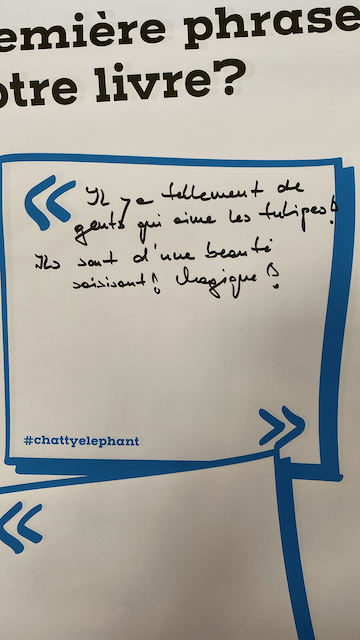 emière phrase
otre livre?
Il y a tellement de
gents qui aime les tulipes!
Ils sont d'une beauté
saisisant! Magique!
#chattyelephant